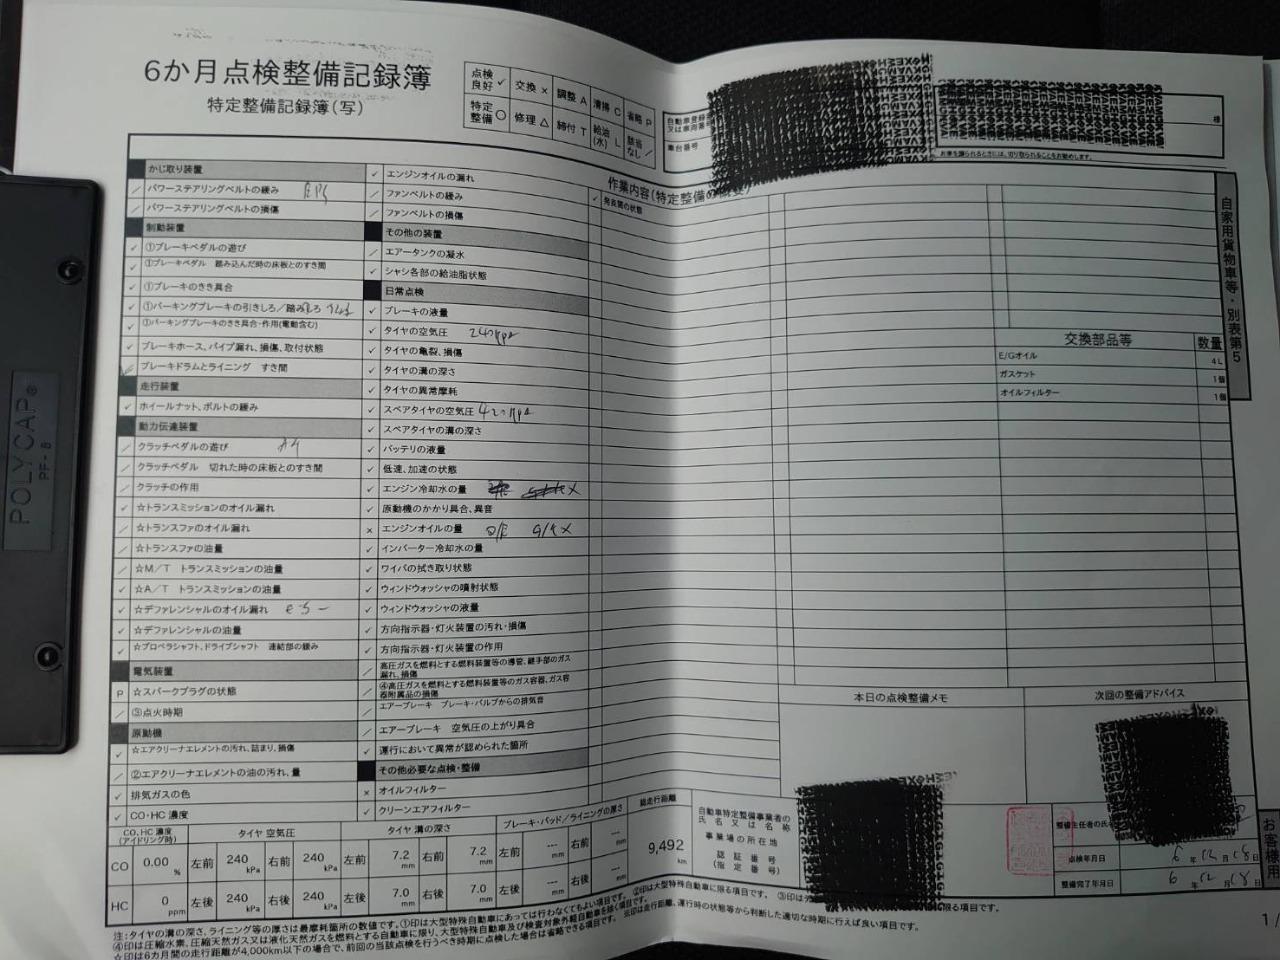 6か月点検整備記録簿
特定整備記録簿(写)
点検良好 ✓ 交換 × 調整 A 清掃 C 省略 P
特定整備 ○ 修理 △ 締付 T 給油(水) L 該当なし ／
自動車登録
又は車両番号
車台番号
様
お車を譲られるときには、切り取られることをお勧めします。
作業内容(特定整備の概要)
自家用貨物車等・別表第5
かじ取り装置
／ パワーステアリングベルトの緩み EPS
／ パワーステアリングベルトの損傷
制動装置
✓ ①ブレーキペダルの遊び
✓ ①ブレーキペダル 踏み込んだ時の床板とのすき間
✓ ①ブレーキのきき具合
✓ ①パーキングブレーキの引きしろ／踏みしろ
✓ ①パーキングブレーキのきき具合・作用(電動含む)
✓ ブレーキホース、パイプ漏れ、損傷、取付状態
ブレーキドラムとライニング すき間
走行装置
✓ ホイールナット、ボルトの緩み
動力伝達装置
／ クラッチペダルの遊び
／ クラッチペダル 切れた時の床板とのすき間
／ クラッチの作用
✓ ☆トランスミッションのオイル漏れ
／ ☆トランスファのオイル漏れ
／ ☆トランスファの油量
／ ☆M／T トランスミッションの油量
✓ ☆A／T トランスミッションの油量
✓ ☆デファレンシャルのオイル漏れ
✓ ☆デファレンシャルの油量
✓ ☆プロペラシャフト、ドライブシャフト 連結部の緩み
電気装置
P ☆スパークプラグの状態
／ ③点火時期
原動機
✓ ☆エアクリーナエレメントの汚れ、詰まり、損傷
／ ②エアクリーナエレメントの油の汚れ、量
✓ 排気ガスの色
✓ CO・HC 濃度
✓ エンジンオイルの漏れ
／ ファンベルトの緩み
／ ファンベルトの損傷
その他の装置
／ エアータンクの凝水
✓ シャシ各部の給油脂状態
日常点検
✓ ブレーキの液量
✓ タイヤの空気圧 240kpa
✓ タイヤの亀裂、損傷
✓ タイヤの溝の深さ
✓ タイヤの異常摩耗
✓ スペアタイヤの空気圧 420kpa
✓ スペアタイヤの溝の深さ
✓ バッテリの液量
✓ 低速、加速の状態
✓ エンジン冷却水の量
✓ 原動機のかかり具合、異音
× エンジンオイルの量
✓ インバーター冷却水の量
✓ ワイパの拭き取り状態
✓ ウィンドウォッシャの噴射状態
✓ ウィンドウォッシャの液量
✓ 方向指示器・灯火装置の汚れ・損傷
✓ 方向指示器・灯火装置の作用
／ 高圧ガスを燃料とする燃料装置等の導管、継手部のガス漏れ、損傷
／ ④高圧ガスを燃料とする燃料装置等のガス容器、ガス容器附属品の損傷
／ エアーブレーキ ブレーキ・バルブからの排気音
／ エアーブレーキ 空気圧の上がり具合
✓ 運行において異常が認められた箇所
その他必要な点検・整備
× オイルフィルター
✓ クリーンエアフィルター
✓ 発炎筒の状態
交換部品等 数量
E/Gオイル 4L
ガスケット 1個
オイルフィルター 1個
本日の点検整備メモ
次回の整備アドバイス
CO、HC 濃度(アイドリング時)
CO 0.00 %
HC 0 ppm
タイヤ 空気圧
左前 240 kPa 右前 240 kPa
左後 240 kPa 右後 240 kPa
タイヤ 溝の深さ
左前 7.2 mm 右前 7.2 mm
左後 7.0 mm 右後 7.0 mm
ブレーキ・パッド／ライニングの厚さ
左前 --- mm 右前 --- mm
左後 --- mm 右後 --- mm
総走行距離
9,492 km
自動車特定整備事業者の
氏名又は名称
事業場の所在地
認証番号
(指定番号)
整備主任者の氏名
点検年月日 6年12月18日
整備完了年月日 6年12月18日
お客様用
1/
注:タイヤの溝の深さ、ライニング等の厚さは最摩耗箇所の数値です。①印は大型特殊自動車にあっては行わなくてもよい項目です。②印は大型特殊自動車に限る項目です。
④印は圧縮水素、圧縮天然ガス又は液化天然ガスを燃料とする自動車に限り、大型特殊自動車及び検査対象外軽自動車を除く項目です。※印は走行距離、運行時の状態等から判断した適切な時期に行えば良い項目です。
☆印は6カ月間の走行距離が4,000km以下の場合で、前回の当該点検を行うべき時期に点検した場合は省略できる項目です。
POLYCAP®
PF-8